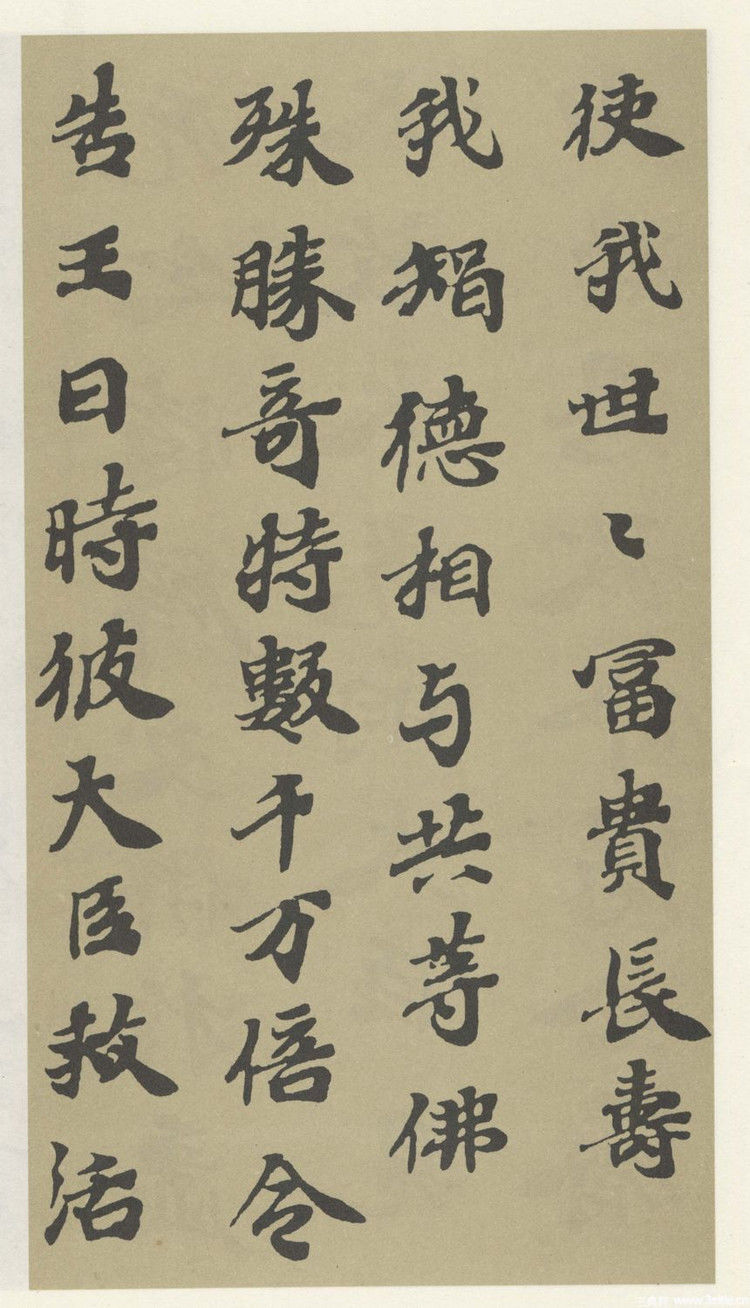 使我世〻冨貴長壽
我智德相与共等佛
殊勝哥特數千万倍令
告王曰時彼大臣救活